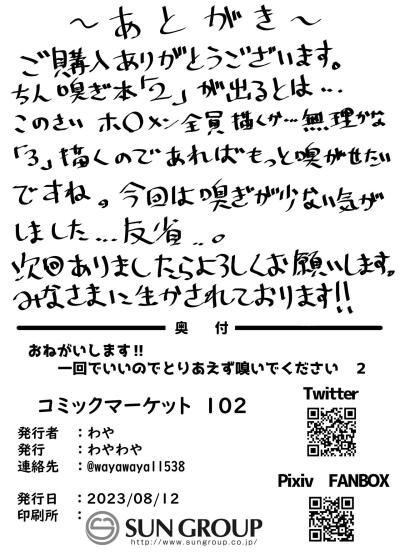 ～あとがき～
ご購入ありがとうございます。
ちん嗅ぎ本「2」が出るとは...
このさい ホ〇メン全員描くか...無理かな
「3」描くのであればもっと嗅がせたい
ですね。今回は嗅ぎが少ない気が
しました...反省..。
次回ありましたらよろしくお願いします。
みなさまに生かされております!!
奥 付
おねがいします!!
一回でいいのでとりあえず嗅いでください 2
コミックマーケット 102
Twitter
発行者 ：わや
発行 ：わやわや
連絡先 ：@wayawaya11538
Pixiv FANBOX
発行日 ：2023/08/12
印刷所 ：
SUN GROUP
http://www.sungroup.co.jp/